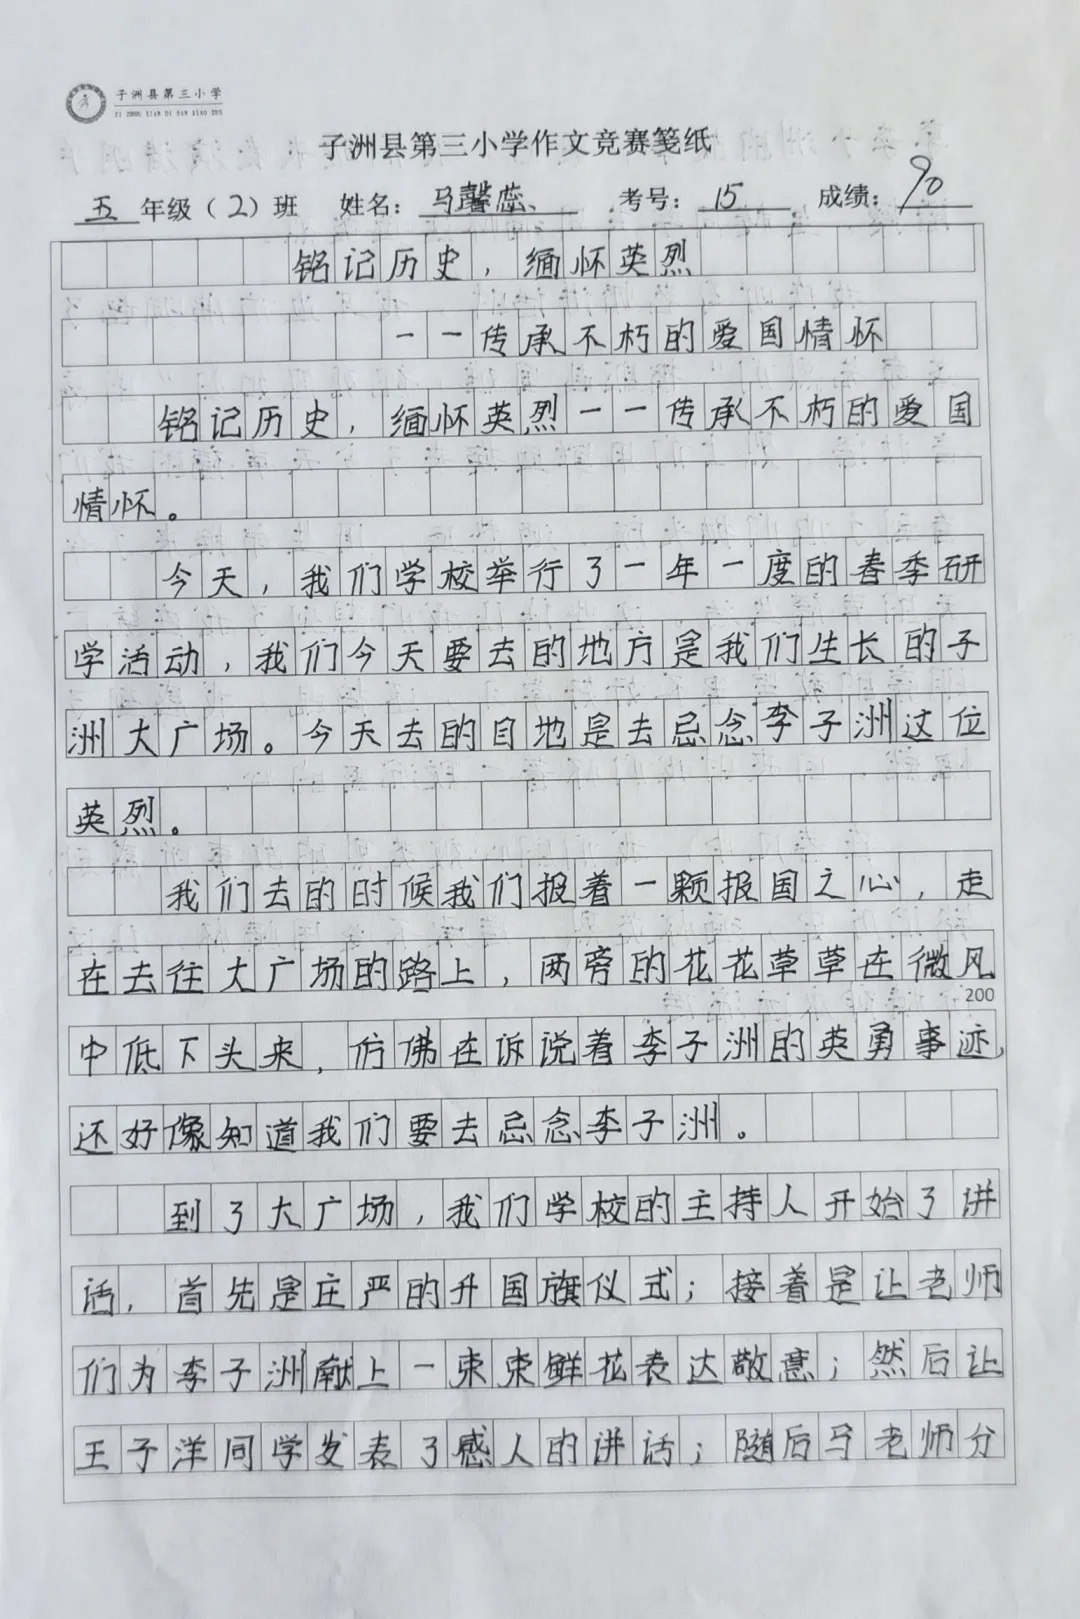 子洲县第三小学
ZI ZHOU XIAN DI SAN XIAO XUE
子洲县第三小学作文竞赛笺纸
五年级(2)班 姓名:马馨蕊 考号:15 成绩:90
铭记历史,缅怀英烈
一一传承不朽的爱国情怀
铭记历史,缅怀英烈一一传承不朽的爱国
情怀。
今天,我们学校举行了一年一度的春季研
学活动,我们今天要去的地方是我们生长的子
洲大广场。今天去的目地是去忌念李子洲这位
英烈。
我们去的时候我们报着一颗报国之心,走
在去往大广场的路上,两旁的花花草草在微风
200
中低下头来,仿佛在诉说着李子洲的英勇事迹,
还好像知道我们要去忌念李子洲。
到了大广场,我们学校的主持人开始了讲
话,首先是庄严的升国旗仪式;接着是让老师
们为李子洲献上一束束鲜花表达敬意;然后让
王子洋同学发表了感人的讲话;随后马老师分